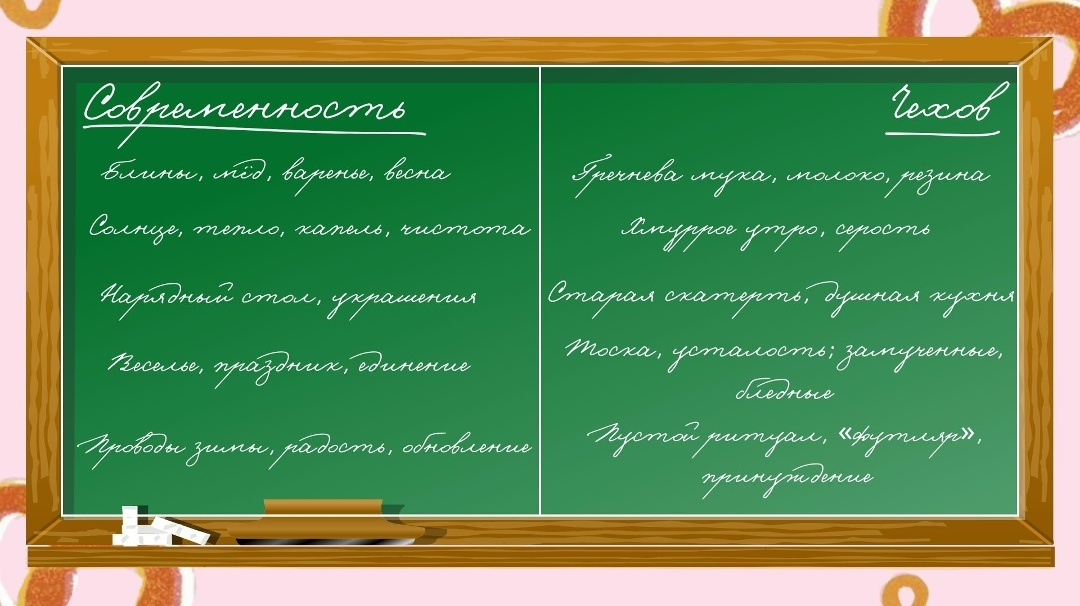 Современность
Блины, мёд, варенье, весна
Солнце, тепло, капель, чистота
Нарядный стол, украшения
Веселье, праздник, единение
Проводы зимы, радость, обновление
Чехов
Гречнева мука, молоко, резина
Хмурое утро, серость
Старая скатерть, душная кухня
Тоска, усталость; замученные,
бледные
Пустой ритуал, «футляр»,
принуждение